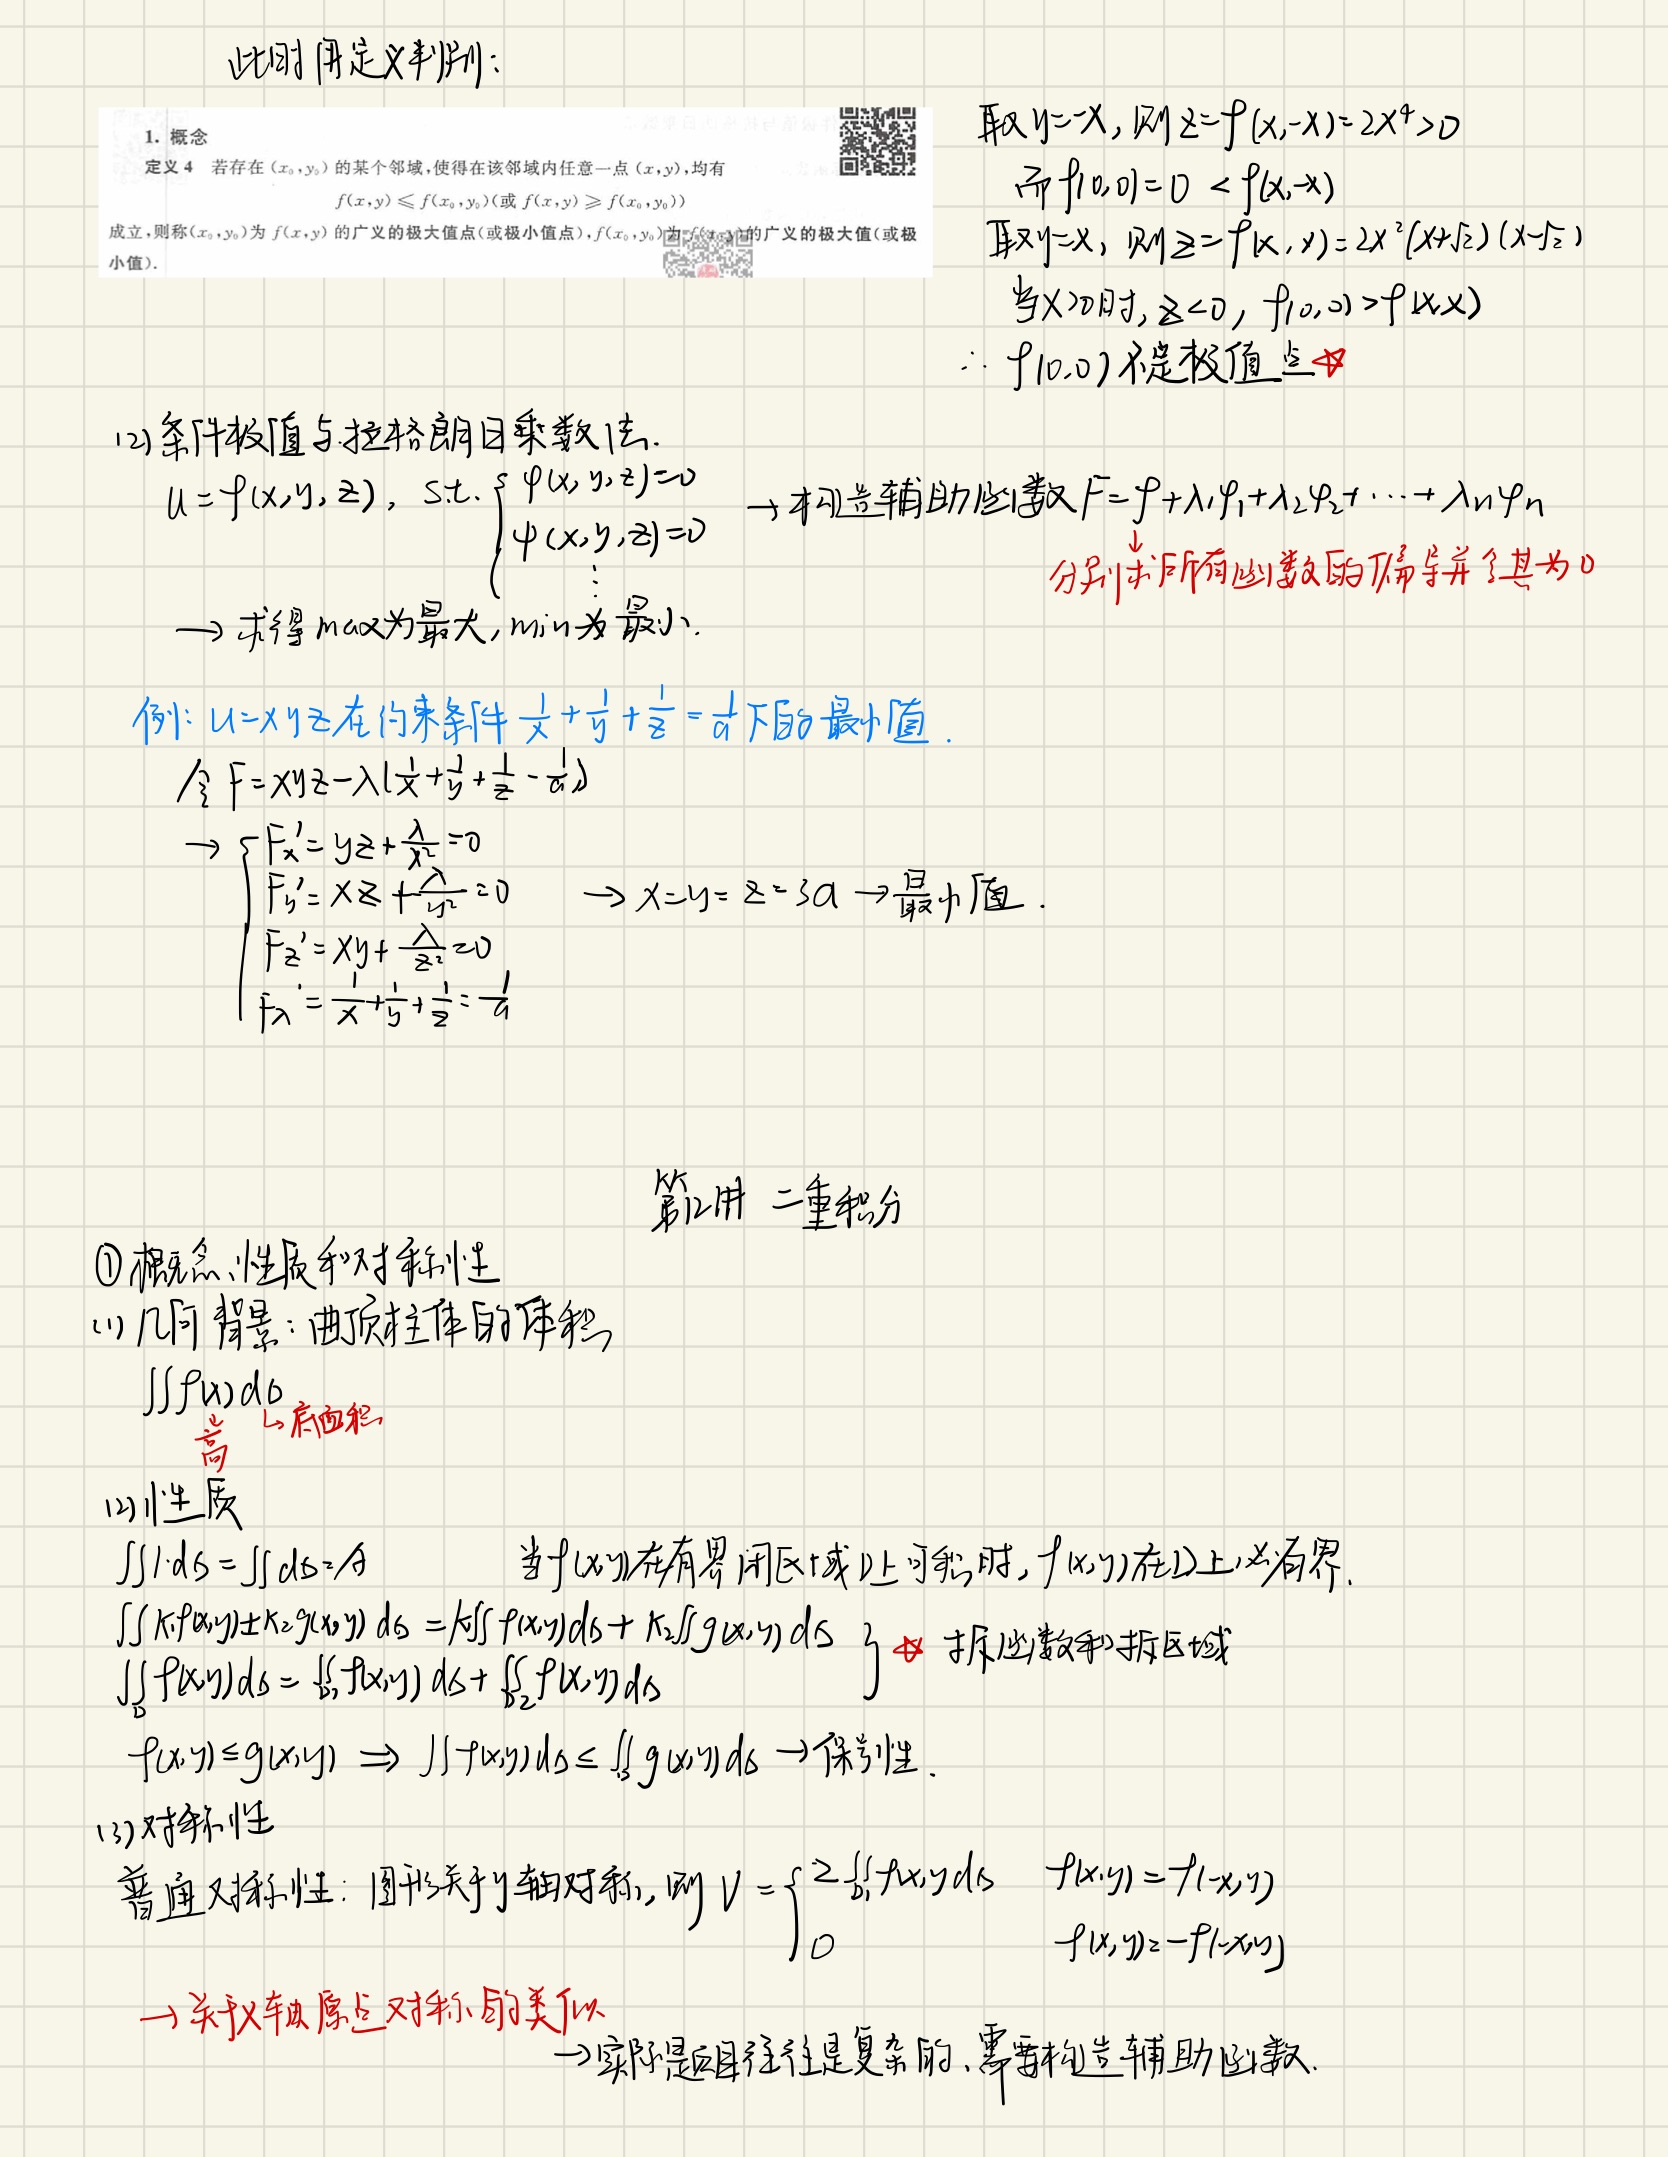 此时用定义判别:
1. 概念
定义 4 若存在 (x₀,y₀) 的某个邻域,使得在该邻域内任意一点 (x,y),均有
f(x,y) ⩽ f(x₀,y₀)(或 f(x,y) ⩾ f(x₀,y₀))
成立,则称(x₀,y₀)为 f(x,y) 的广义的极大值点(或极小值点),f(x₀,y₀)为 f(x,y)的广义的极大值(或极
小值).
取y=-x, 则z=f(x,-x)=2x⁴>0
而f(0,0)=0 <f(x,-x)
取y=x, 则z=f(x,x)=2x²(x+√2)(x-√2)
当x>0时, z<0, f(0,0)>f(x,x)
∴ f(0,0)不是极值点☆
(2)条件极值与拉格朗日乘数法.
u=f(x,y,z), s.t. { φ(x,y,z)=0
ψ(x,y,z)=0
⋮
→构造辅助函数F=f+λ₁φ₁+λ₂φ₂+⋯+λₙφₙ
↓
分别求所有函数的偏导并令其为0
→求得max为最大,min为最小.
例: u=xyz在约束条件 1/x+1/y+1/z=1/a下的最小值.
令F=xyz-λ(1/x+1/y+1/z-1/a)
→ { Fx'=yz+λ/x²=0
Fy'=xz+λ/y²=0 →x=y=z=3a→最小值.
Fz'=xy+λ/z²=0
Fλ'=1/x+1/y+1/z=1/a
第12讲 二重积分
①概念、性质和对称性
(1)几何背景:曲顶柱体的体积
∬f(x)dσ
↓高 ↳底面积
(2)性质
∬1·dσ=∬dσ=A 当f(x,y)在有界闭区域D上可积时,f(x,y)在D上必有界.
∬k₁f(x,y)±k₂g(x,y) dσ=k∬f(x,y)dσ+k₂∬g(x,y)dσ
} ☆ 拆函数和拆区域
∬_D f(x,y)dσ=∬_D₁ f(x,y)dσ+∬_D₂ f(x,y)dσ
f(x,y)≤g(x,y) ⇒ ∬f(x,y)dσ≤∬_D g(x,y)dσ→保号性.
(3)对称性
普通对称性:图形关于y轴对称,则V={ 2∬_D₁ f(x,ydσ f(x,y)=f(-x,y)
0 f(x,y)=-f(-x,y)
→关于x轴原点对称的类似
→实际是题目往往是复杂的、需要构造辅助函数.